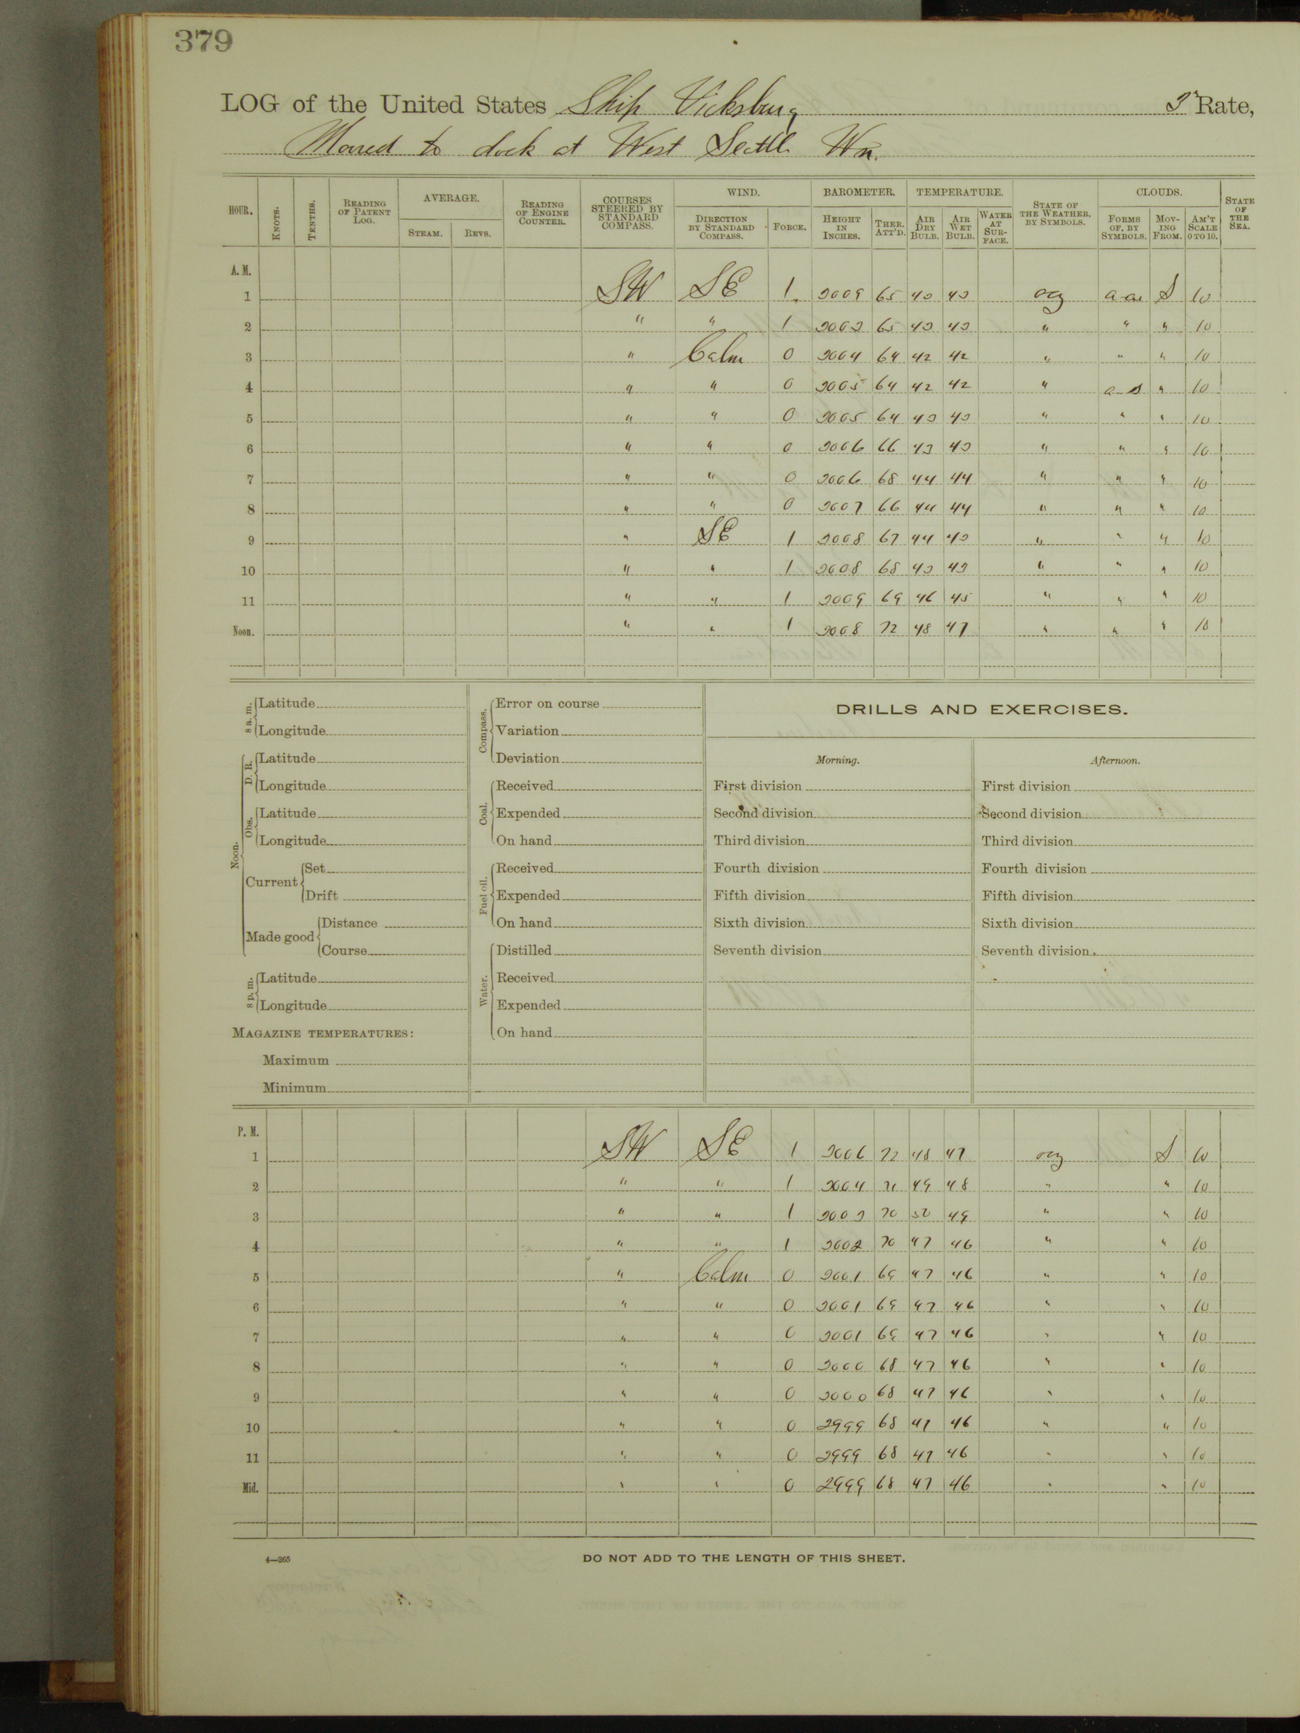 379
LOG of the United States Ship Vicksburg 3d Rate,
Moored to dock at West Seattle Wn.
HOUR. KNOTS. TENTHS. READING OF PATENT LOG. AVERAGE. STEAM. REVS. READING OF ENGINE COUNTER. COURSES STEERED BY STANDARD COMPASS. WIND. DIRECTION BY STANDARD COMPASS. FORCE. BAROMETER. HEIGHT IN INCHES. THER. ATT'D. TEMPERATURE. AIR DRY BULB. AIR WET BULB. WATER AT SURFACE. STATE OF THE WEATHER, BY SYMBOLS. CLOUDS. FORMS OF, BY SYMBOLS. MOVING FROM. AM'T SCALE 0 TO 10. STATE OF THE SEA.
A. M.
1 SW SE 1 65 43 43 S 10
2 " " 1 3003 65 43 43 " " " 10
3 " Calm 0 3004 64 42 42 " " " 10
4 " " 0 3005 64 42 42 " a-s " 10
5 " " 0 3005 64 43 43 " " " 10
6 " " 0 3006 66 43 43 " " " 10
7 " " 0 3006 68 44 44 " " " 10
8 " " 0 3007 66 44 44 " " " 10
9 " SE 1 3008 67 44 43 " " " 10
10 " " 1 3008 68 43 43 " " " 10
11 " " 1 3009 69 46 45 " " " 10
Noon. " " 1 3008 72 48 47 " " " 10
8 a. m. Latitude
Longitude
Noon. D. R. Latitude
Longitude
Obs. Latitude
Longitude
Current Set
Drift
Made good Distance
Course
8 p. m. Latitude
Longitude
MAGAZINE TEMPERATURES:
Maximum
Minimum
Compass. Error on course
Variation
Deviation
Coal. Received
Expended
On hand
Fuel oil. Received
Expended
On hand
Water. Distilled
Received
Expended
On hand
DRILLS AND EXERCISES.
Morning.
First division
Second division
Third division
Fourth division
Fifth division
Sixth division
Seventh division
Afternoon.
First division
Second division
Third division
Fourth division
Fifth division
Sixth division
Seventh division
P. M.
1 SW SE 1 3006 72 48 47 S 10
2 " " 1 3004 71 49 48 " " 10
3 " " 1 3003 70 50 49 " " 10
4 " " 1 3002 70 47 46 " " 10
5 " Calm 0 3001 69 47 46 " " 10
6 " " 0 3001 69 47 46 " " 10
7 " " 0 3001 69 47 46 " " 10
8 " " 0 3000 68 47 46 " " 10
9 " " 0 3000 68 47 46 " " 10
10 " " 0 2999 68 47 46 " " 10
11 " " 0 2999 68 47 46 " " 10
Mid. " " 0 2999 68 47 46 " " 10
4—265
DO NOT ADD TO THE LENGTH OF THIS SHEET.